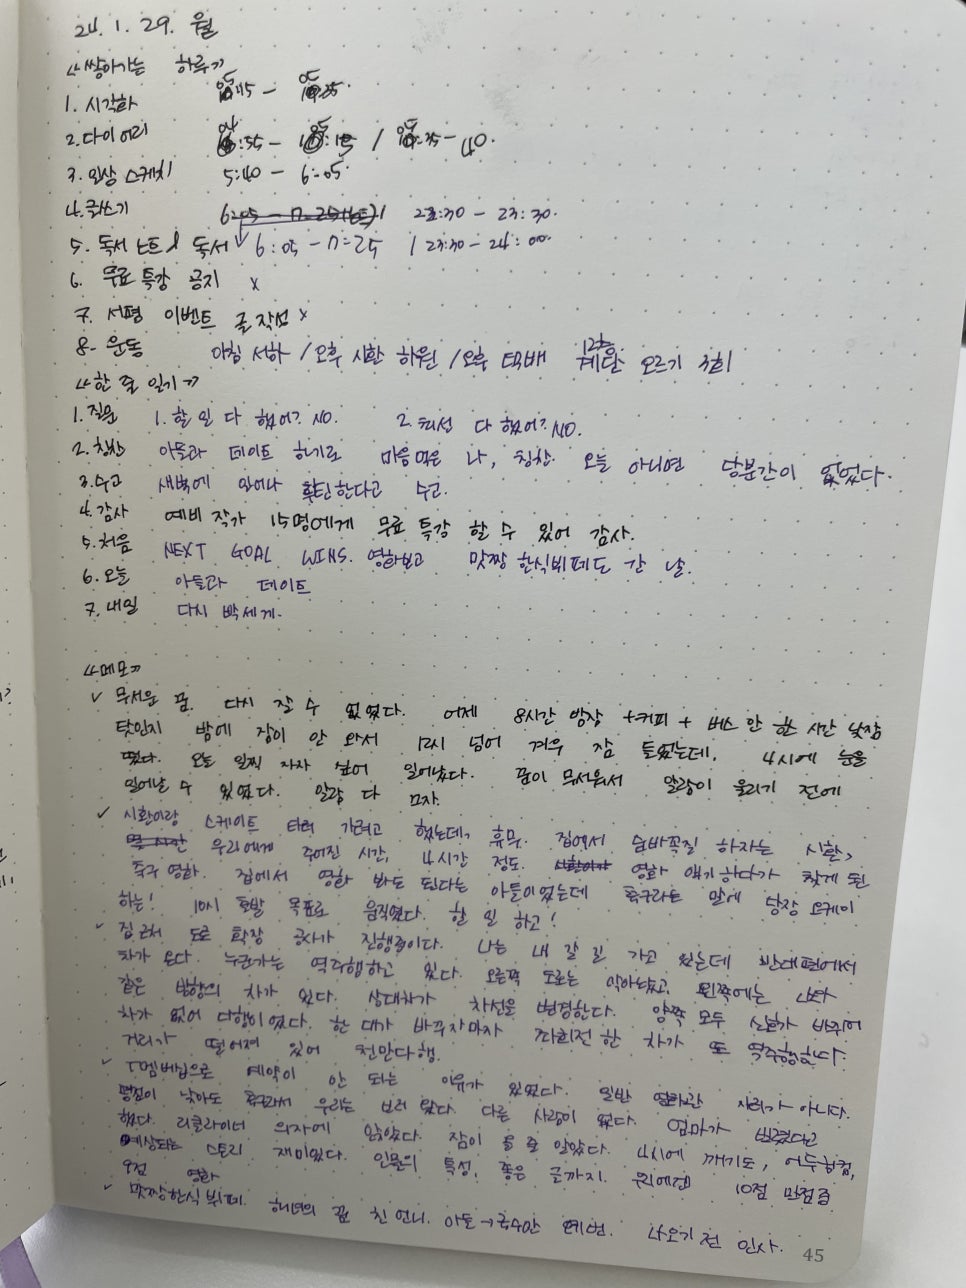 24. 1. 29. 월
<쌓아가는 하루>
1. 시각화 05:15 -
2. 다이어리 04:55 - 05:15 / 05:35 - 40.
3. 일상 스케치 5:40 - 6:05
4. 글쓰기 23:30.
5. 독서 노트 & 독서 6:05 - 7:25 / 23:30 - 24:00.
6. 무료 특강 공지 x
7. 서평 이벤트 글 작성 x
8. 운동 아침 서하 / 오후 시환 하원 / 오후 택배 12층 계단 오르기 1회
<한 줄 일기>
1. 질문 1. 할 일 다 했어? NO. 2. 최선 다 했어? NO.
2. 칭찬 아들과 데이트 하기로 마음먹은 나, 칭찬. 오늘 아니면 당분간이 없었다.
3. 수고 새벽에 일어나 루틴한다고 수고.
4. 감사 예비 작가 15명에게 무료 특강 할 수 있어 감사.
5. 처음 NEXT GOAL WINS. 영화보고 맛짱 한식뷔페도 간 날.
6. 오늘 아들과 데이트
7. 내일 다시 빡세게.
<메모>
✓ 무서운 꿈. 다시 잘 수 없었다. 어제 8시간 방장 + 커피 + 버스 안 한 시간 낮잠
탓인지 밤에 잠이 안 와서 12시 넘어 겨우 잠 들었는데, 4시에 눈을
떴다. 오늘 일찍 자자 싶어 일어났다. 꿈이 무서워서 알람이 울리기 전에
일어날 수 있었다. 알람 다
✓ 시환이랑 스케이트 타러 가려고 했는데, 휴무. 집에서 숨바꼭질 하자는 시환,
우리에게 주어진 시간, 4시간 정도. 영화 얘기하다가 찾게 된
축구 영화. 집에서 영화 봐도 된다는 아들이었는데 축구라는 말에 당장 오케이
하는! 10시 출발 목표로 움직였다. 할 일 하고!
✓ 집 근처 도로 확장 공사가 진행중이다. 나는 내 갈 길 가고 있는데 반대편에서
차가 온다. 누군가는 역주행하고 있다. 오른쪽 도로는 막아놨고, 왼쪽에는 나와
같은 방향의 차가 있다. 상대차가 차선을 변경한다. 양쪽 모두 신호가 바뀌어
차가 없어 다행이었다. 한 대가 바꾸자마자 좌회전 한 차가 또 역주행한다.
거리가 떨어져 있어 천만다행.
✓ T멤버십으로 예약이 안 되는 이유가 있었다. 일반 영화관 자리가 아니다.
평점이 낮아도 축구라서 우리는 보러 왔다. 다른 사람이 없다. 엄마가 빌렸다고
했다. 리클라이너 의자에 앉았다. 잠이 올 줄 알았다. 4시에 깨기도, 어두컴컴,
예상되는 스토리 재미있다. 인물의 특성, 좋은 글까지. 10점 만점 중
9점 영화
✓ 맛짱한식뷔페. 친 언니. 아들 → 국수만 나오기 전 인사.
45